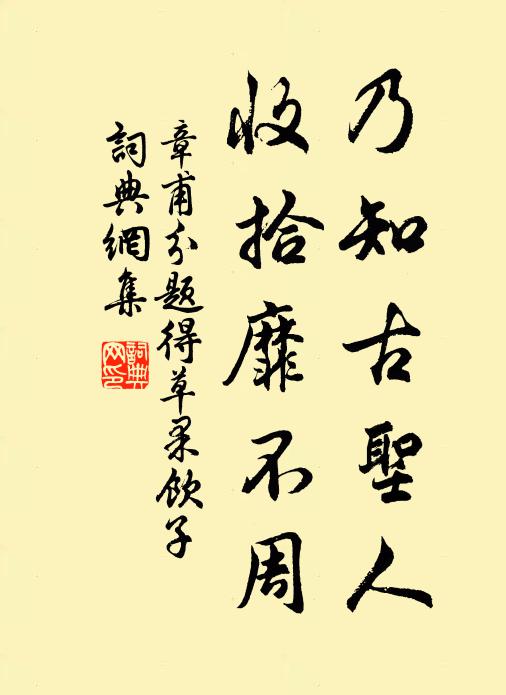 乃知古聖人
收拾靡不周
章甫分題得草果飲子
詞典網集
詞典
網印